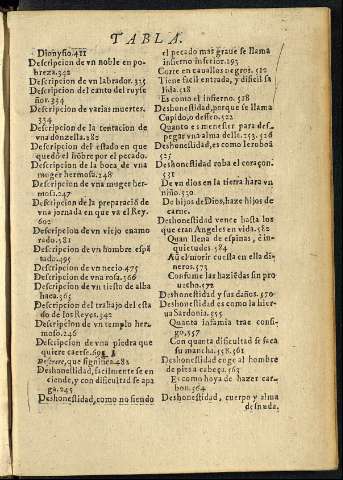 TABLA.
Dionysio.411
Descripcion de vn noble en po-
breza.342
Descripcion de vn labrador.335
Descripcion del canto del ruyse
ñor.334
Descripcion de varias muertes.
334
Descripcion de la tentacion de
vna donzella.382
Descripcion del estado en que
quedò el hõbre por el pecado.
Descripcion de la boca de vna
muger hermosa.248
Descripcion de vna muger her-
mosa.247
Descripcion de la preparació de
vna jornada en que va el Rey.
602
Descripcion de vn viejo enamo
rado.581
Descripcion de vn hombre espã
tado.495
Descripcion de vn necio.475
Descripcion de vna rosa.366
Descripcion de vn tiesto de alba
haca.365
Descripcion del trabajo del esta
do de los Reyes.342
Descripcion de vn templo her-
moso.246
Descripcion de vna piedra que
quiere caerse.601
que significa.482
Deshonestidad, facilmente se en
ciende, y con dificultad se apa
ga.245
Deshonestidad, como no siendo
el pecado mas graue se llama
infierno inferior.193
Corre en cauallos negros.512
Tiene facil entrada, y dificil sa
lida.518
Es como el infierno.518
Deshonestidad, porque se llama
Cupido, o desseo.522
Quanto es menester para des-
pegar vna alma della.253.526
Deshonestidad, es como leroboã
525
Deshonestidad roba el coraçon.
531
De vn dios en la tierra hara vn
niño.530
De hijos de Dios, haze hijos de
carne.
Deshonestidad vence hasta los
que eran Angeles en vida.582
Quan llena de espinas, è in-
quietudes.584
Aũ el morir cuesta en ella di-
neros.573
Consume las haziẽdas sin pro
uecho.572
Deshonestidad y sus daños.570
Deshonestidad es como la hier-
ua Sardonia.555
Quanta infamia trae consi-
go.557
Con quanta dificultad se saca
su mancha.558.561
Deshonestidad coge al hombre
de pies a cabeça.563
Es como hoya de hazer car-
bon.564
Deshonestidad, cuerpo y alma
desnuda.